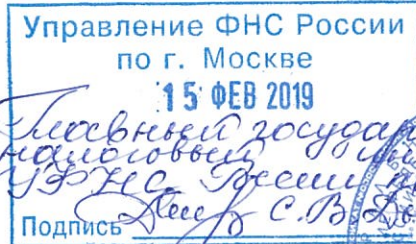 Управление ФНС России
по г. Москве
15 ФЕВ 2019
Главный государ
налоговый
УФНС России
Подпись С.В.